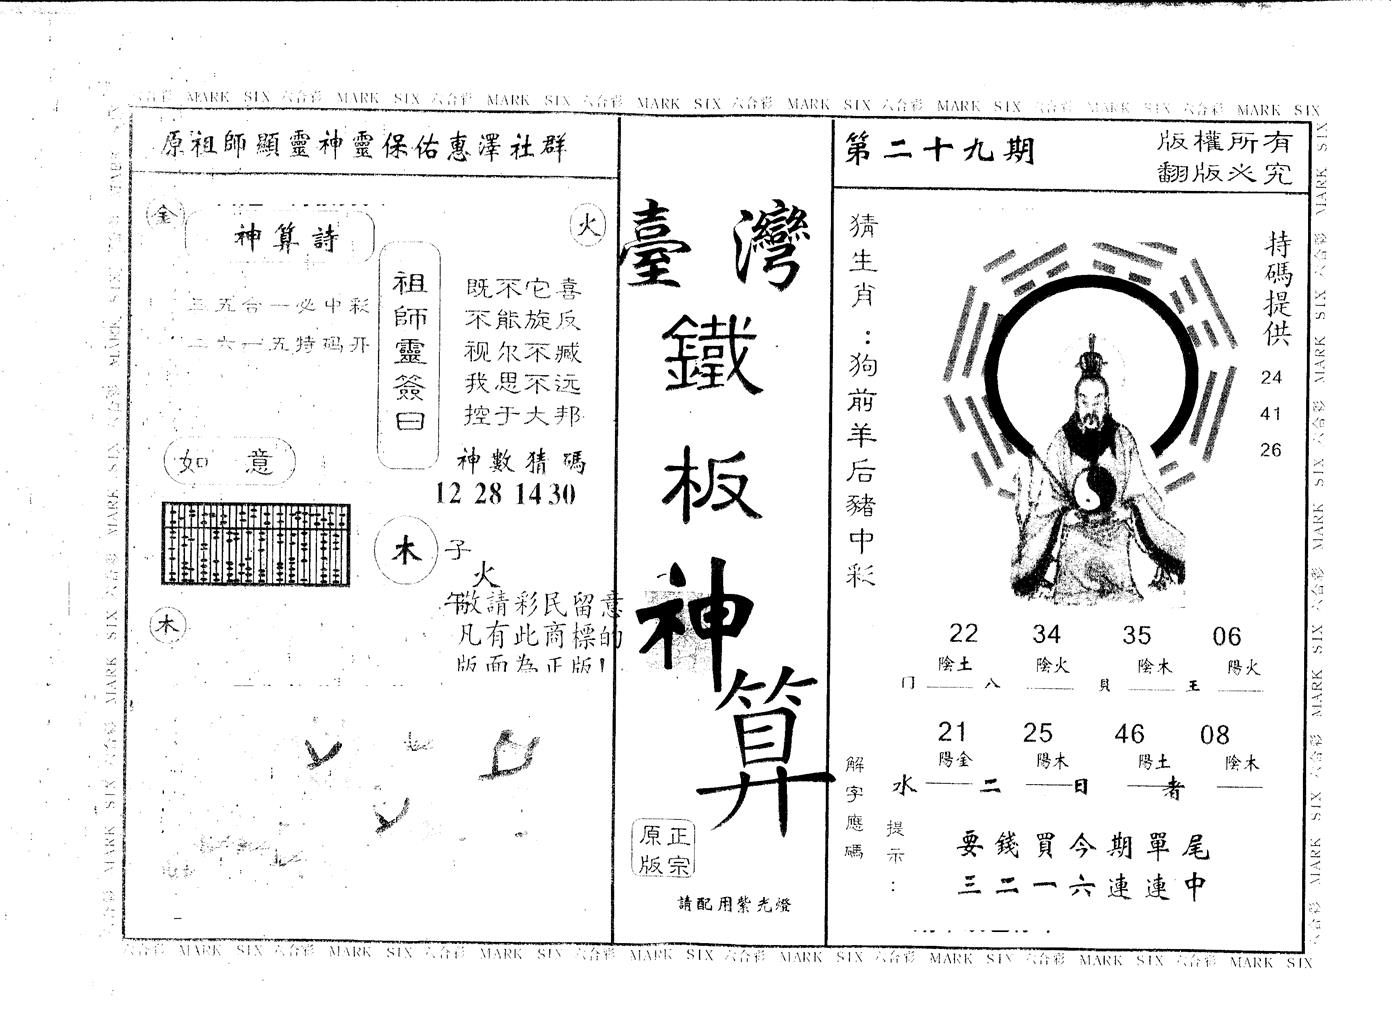 六合彩 MARK SIX 六合彩 MARK SIX 六合彩 MARK SIX 六合彩 MARK SIX 六合彩 MARK SIX 六合彩 MARK SIX 六合彩 MARK SIX 六合彩 MARK SIX
原祖師顯靈神靈保佑惠澤社群
金
神算詩
火
三五合一必中彩
二六一五特码开
祖師靈簽曰
既不它喜
不能旋反
视尔不臧
我思不远
控于大邦
神數猜碼
12 28 14 30
如意
木
子
火
午
木
敬請彩民留意
凡有此商標的
版面為正版!
臺灣
鐵
板
神
算
正宗
原版
請配用紫光燈
第二十九期
版權所有
翻版必究
猜生肖:狗前羊后豬中彩
持碼提供
24
41
26
22 34 35 06
陰土 陰火 陰木 陽火
门 八 貝 王
21 25 46 08
陽金 陽木 陽土 陰木
水 二 日 者
解字應碼
提示:
要錢買今期單尾
三二一六連連中
六合彩 MARK SIX 六合彩 MARK SIX 六合彩 MARK SIX 六合彩 MARK SIX 六合彩 MARK SIX 六合彩 MARK SIX 六合彩 MARK SIX 六合彩 MARK SIX